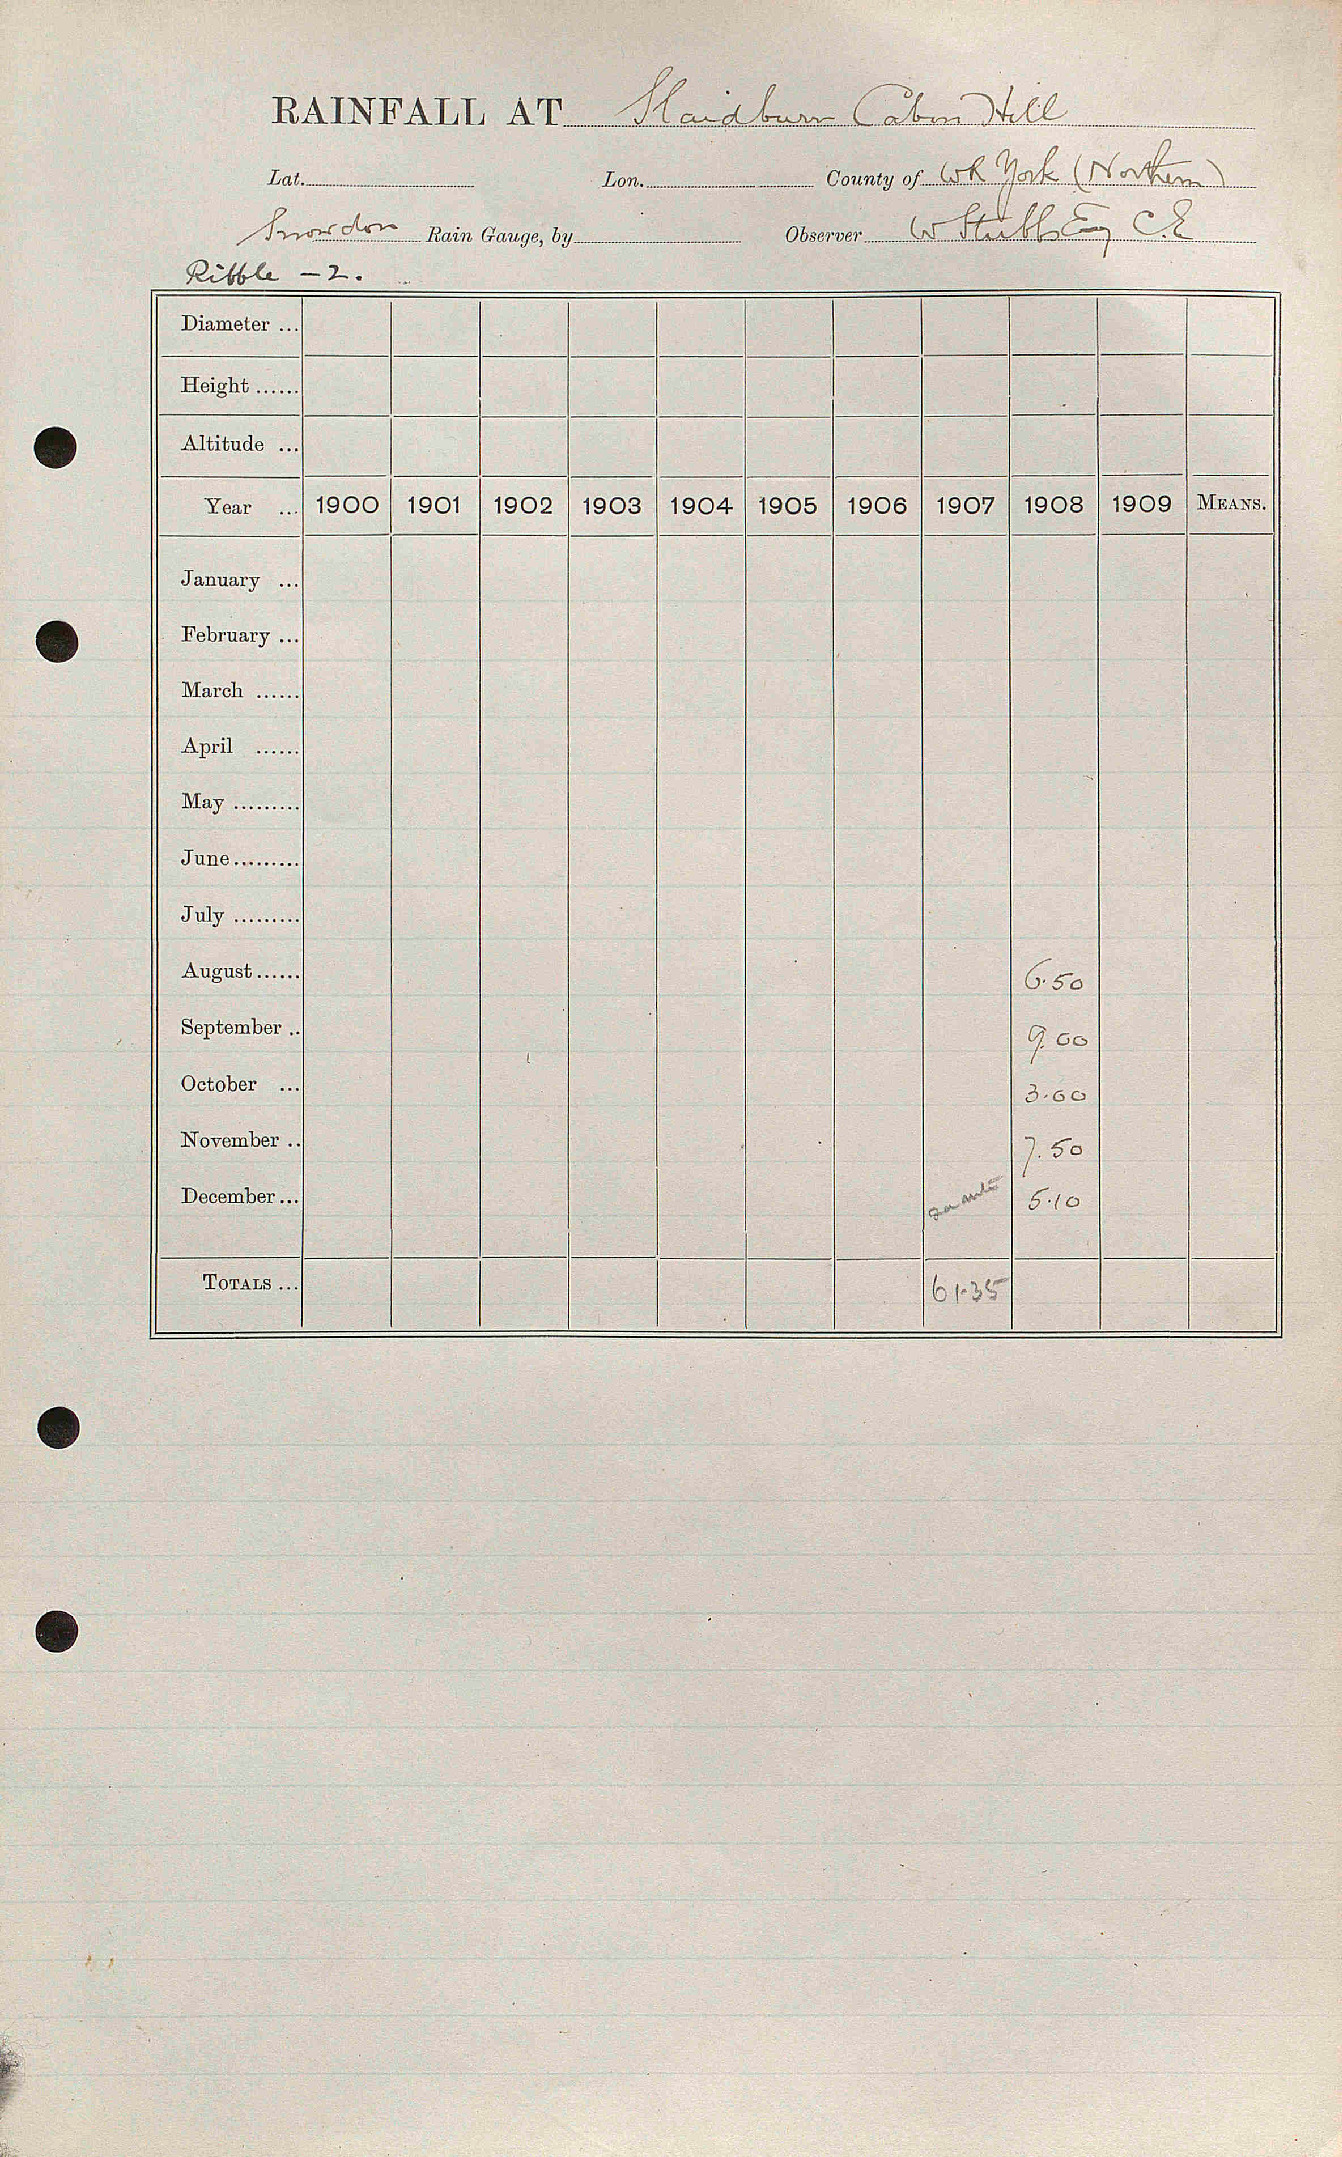 RAINFALL AT Slaidburn Cabin Hill
Lat. Lon. County of WR York (Northern)
Snowdon Rain Gauge, by Observer W Stubbs Esq C.E
Ribble - 2.
Diameter ...
Height ......
Altitude ...
Year ... 1900 1901 1902 1903 1904 1905 1906 1907 1908 1909 MEANS.
January ...
February ...
March ......
April ......
May .........
June.........
July .........
August...... 6.50
September .. 9.00
October ... 3.60
November .. 7.50
December... 5.10
TOTALS ... 61.35